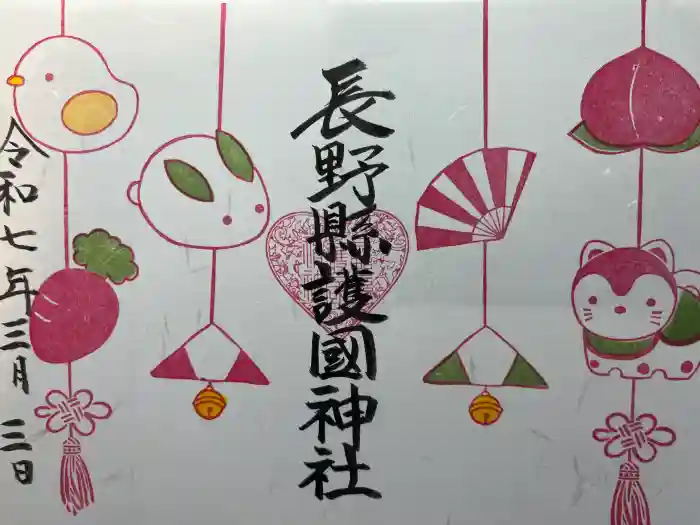 長野縣護國神社
令和七年三月三日